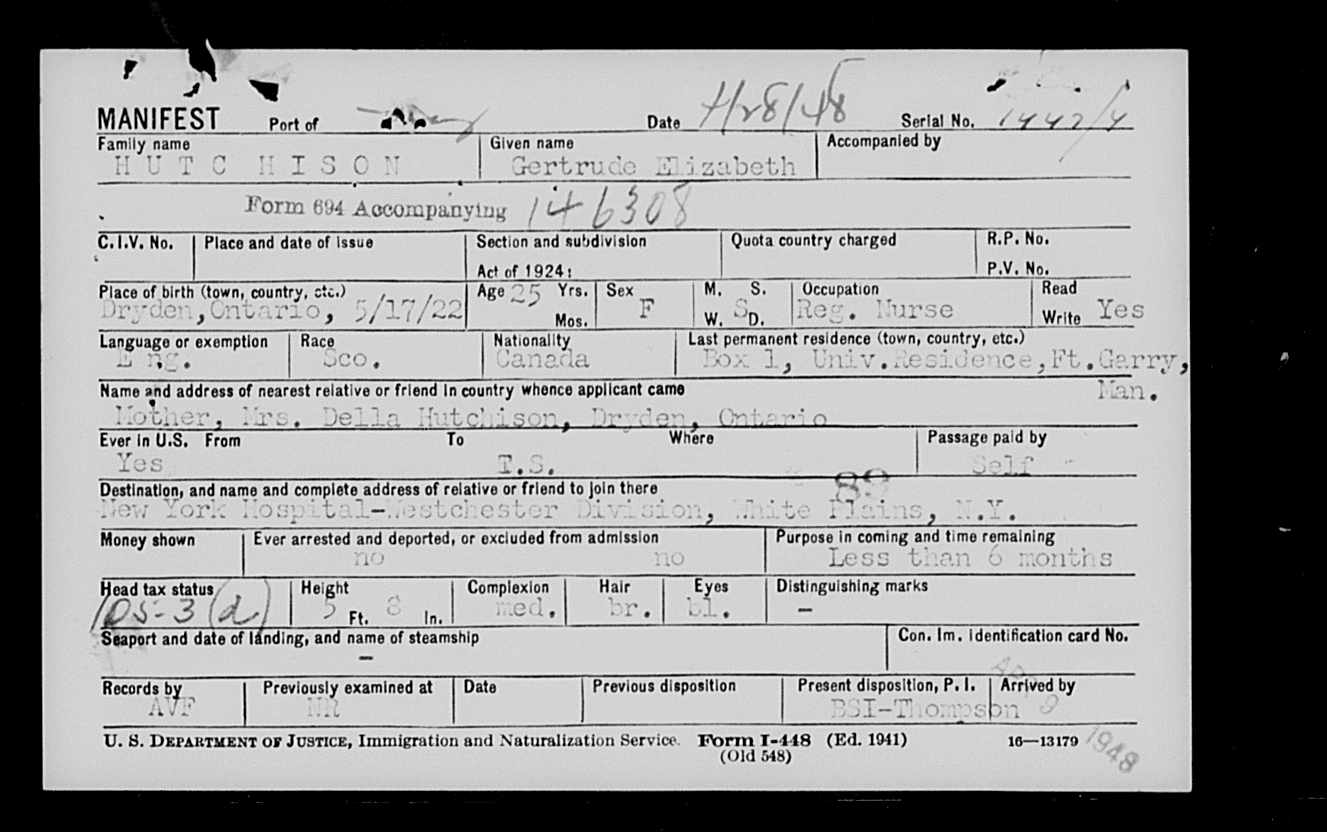 MANIFEST Port of Date 4/28/48 Serial No. 1442/4
Family name Given name Accompanied by
HUTCHISON Gertrude Elizabeth
Form 694 Accompanying 146308
C.I.V. No. Place and date of issue Section and subdivision Quota country charged R.P. No.
Act of 1924: P.V. No.
Place of birth (town, country, etc.) Age 25 Yrs. Sex M. S. Occupation Read
Dryden, Ontario, 5/17/22 Mos. F W. S D. Reg. Nurse Write Yes
Language or exemption Race Nationality Last permanent residence (town, country, etc.)
Eng. Sco. Canada Box 1, Univ. Residence, Ft. Garry,
Name and address of nearest relative or friend in country whence applicant came Man.
Mother, Mrs. Della Hutchison, Dryden, Ontario
Ever in U.S. From To Where Passage paid by
Yes T.S. Self -
Destination, and name and complete address of relative or friend to join there 89
New York Hospital-Westchester Division, White Plains, N.Y.
Money shown Ever arrested and deported, or excluded from admission Purpose in coming and time remaining
no no Less than 6 months
Head tax status Height Complexion Hair Eyes Distinguishing marks
105-3(d) 5 Ft. 8 In. med. br. bl. -
Seaport and date of landing, and name of steamship Con. Im. Identification card No.
-
Records by Previously examined at Date Previous disposition Present disposition, P. I. Arrived by
AVF NR BSI-Thompson
U. S. DEPARTMENT OF JUSTICE, Immigration and Naturalization Service. Form I-448 (Ed. 1941) 16—13179 1948
(Old 548)